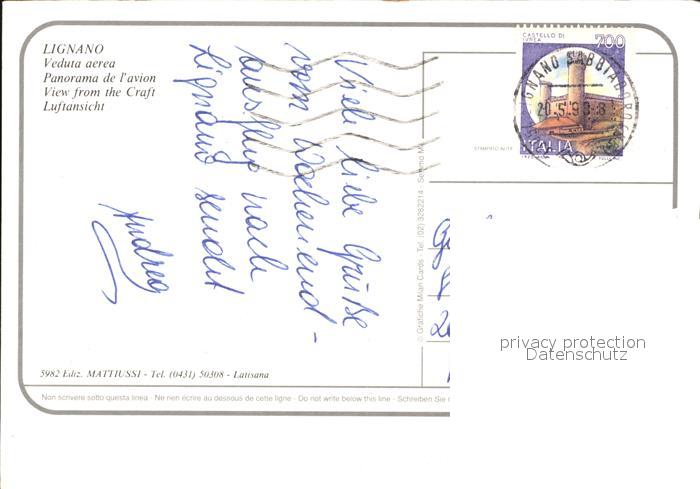 LIGNANO
Veduta aerea
Panorama de l'avion
View from the Craft
Luftansicht
Viele liebe Grüße
vom Wochenend-
ausflug nach
Lignano sendet
Andrea
5982 Ediz. MATTIUSSI - Tel. (0431) 50308 - Latisana
Non scrivere sotto questa linea - Ne rien écrire au dessous de cette ligne - Do not write below this line - Schreiben Sie
© Grafiche Milan Cards - Tel. (02) 3282214 - Settimo M
CASTELLO DI
IVREA
700
ITALIA
GNANO SABBIADORO
20.5.9
privacy protection
Datenschutz